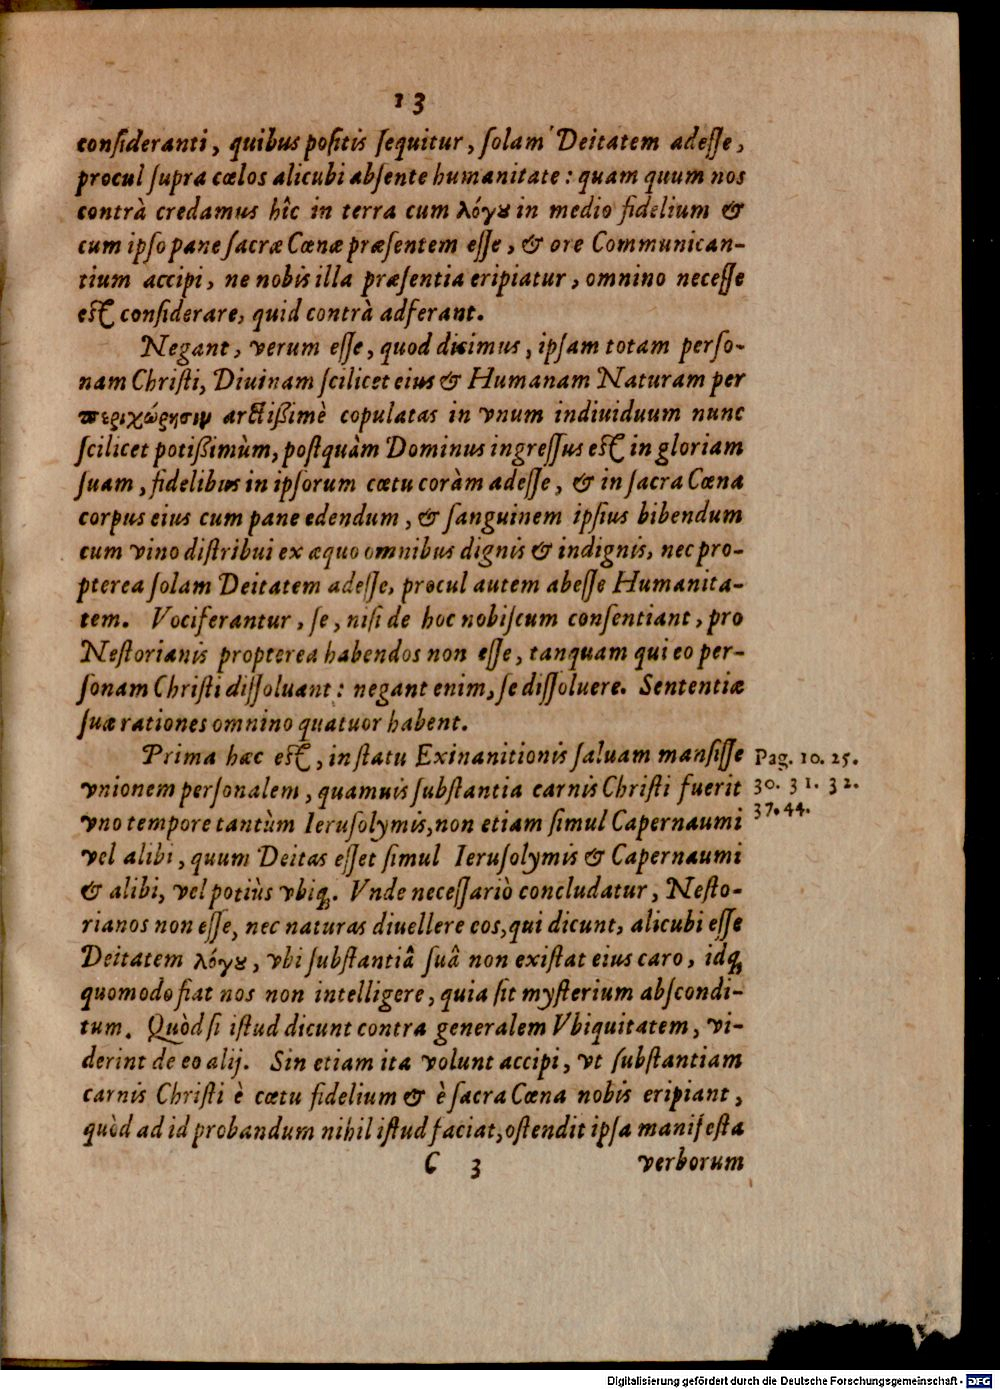 13
conſideranti, quibus poſitis ſequitur, ſolam Deitatem adeſſe,
procul ſupra cœlos alicubi abſente humanitate: quam quum nos
contrà credamus hîc in terra cum λόγȣ in medio fidelium &
cum ipſo pane ſacræ Cœnæ præſentem eſſe, & ore Communican-
tium accipi, ne nobis illa præſentia eripiatur, omnino neceſſe
eſt conſiderare, quid contrà adferant.
Negant, verum eſſe, quod dicimus, ipſam totam perſo-
nam Chriſti, Diuinam ſcilicet eius & Humanam Naturam per
περιχώρησιν arctißimè copulatas in vnum indiuiduum nunc
ſcilicet potißimùm, poſtquàm Dominus ingreſſus eſt in gloriam
ſuam, fidelibus in ipſorum cœtu coràm adeſſe, & in ſacra Cœna
corpus eius cum pane edendum, & ſanguinem ipſius bibendum
cum vino diſtribui ex æquo omnibus dignis & indignis, nec pro-
pterea ſolam Deitatem adeſſe, procul autem abeſſe Humanita-
tem. Vociferantur, ſe, niſi de hoc nobiſcum conſentiant, pro
Neſtorianis propterea habendos non eſſe, tanquam qui eo per-
ſonam Chriſti diſſoluant: negant enim, ſe diſſoluere. Sententiæ
ſuæ rationes omnino quatuor habent.
Prima hæc eſt, in ſtatu Exinanitionis ſaluam manſiſſe
vnionem perſonalem, quamuis ſubſtantia carnis Chriſti fuerit
vno tempore tantùm Ieruſolymis, non etiam ſimul Capernaumi
vel alibi, quum Deitas eſſet ſimul Ieruſolymis & Capernaumi
& alibi, vel potiùs vbiq;. Vnde neceſſariò concludatur, Neſto-
rianos non eſſe, nec naturas diuellere eos, qui dicunt, alicubi eſſe
Deitatem λόγȣ, vbi ſubſtantiâ ſuâ non exiſtat eius caro, idq;
quomodo fiat nos non intelligere, quia ſit myſterium abſcondi-
tum. Quòd ſi iſtud dicunt contra generalem Vbiquitatem, vi-
derint de eo alij. Sin etiam ita volunt accipi, vt ſubſtantiam
carnis Chriſti è cœtu fidelium & è ſacra Cœna nobis eripiant,
quòd ad id probandum nihil iſtud faciat, oſtendit ipſa manifeſta
Pag. 10. 25.
30. 31. 32.
37. 44.
C 3 verborum
Digitalisierung gefördert durch die Deutsche Forschungsgemeinschaft - DFG